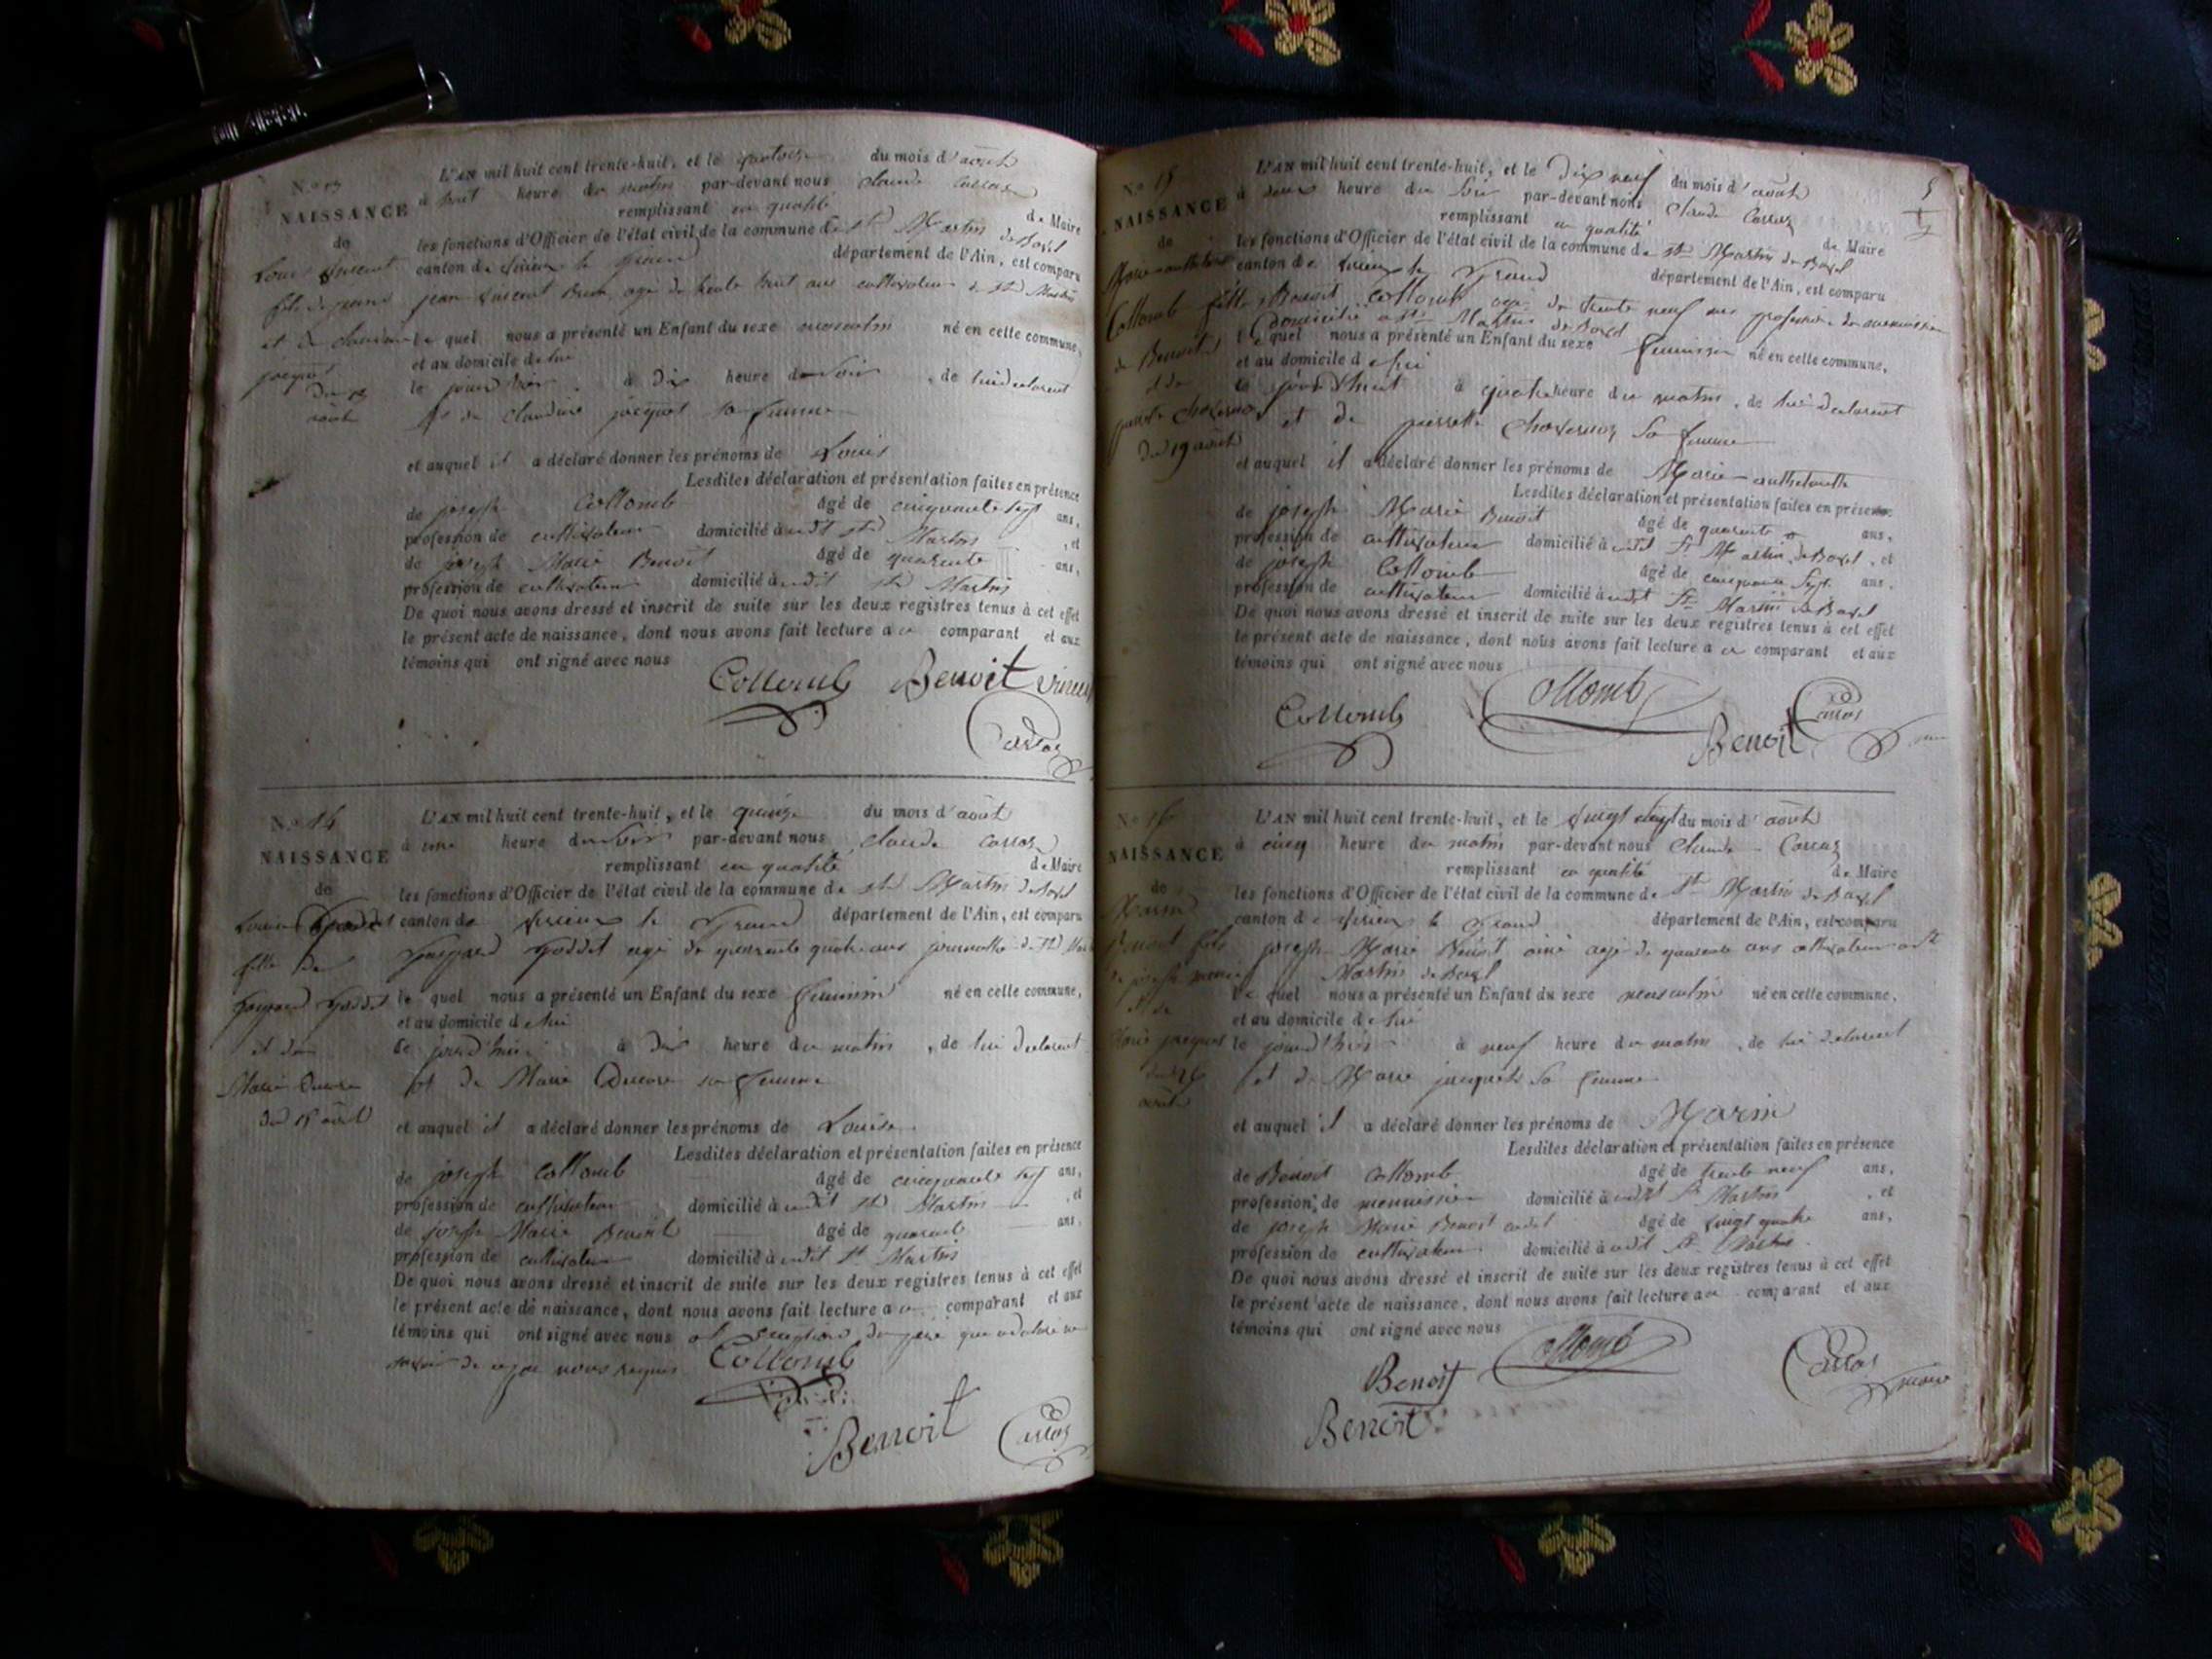 N.o 13
NAISSANCE
de
Louis Vincent
fils de jean
et de claudine
jacquet
du 13
août
L'AN mil huit cent trente-huit, et le quatorze du mois d'août
à huit heure du matin par-devant nous claude Carraz
remplissant en qualité de Maire
les fonctions d'Officier de l'état civil de la commune de st Martin de Bavel
canton de virieux le grand département de l'Ain, est comparu
jean Vincent agé de trente huit ans cultivateur à st Martin
le quel nous a présenté un Enfant du sexe masculin né en cette commune,
et au domicile de lui
le jour d'hier à dix heure du soir, de lui declarent
et de claudine jacquet sa femme
et auquel il a déclaré donner les prénoms de Louis
Lesdites déclaration et présentation faites en présence
de joseph Collomb âgé de cinquante sept ans,
profession de cultivateur domicilié audit st Martin, et
de joseph Marie Benoit âgé de quarante ans,
profession de cultivateur domicilié audit st Martin
De quoi nous avons dressé et inscrit de suite sur les deux registres tenus à cet effet
le présent acte de naissance, dont nous avons fait lecture au comparant et aux
témoins qui ont signé avec nous
Collomb Benoit Vincent
Carraz
N.o 14
NAISSANCE
de
Louise Goddet
fille de
gaspard goddet
et de
Marie Ducre
du 15 août
L'AN mil huit cent trente-huit, et le quinze du mois d'août
à une heure du soir par-devant nous claude Carraz
remplissant en qualité de Maire
les fonctions d'Officier de l'état civil de la commune de st Martin de Bavel
canton de virieux le Grand département de l'Ain, est comparu
gaspard goddet agé de quarante quatre ans journallier à st
le quel nous a présenté un Enfant du sexe feminin né en cette commune,
et au domicile de lui
le jourd'hui à dix heure du matin, de lui declarent
et de Marie sa femme
et auquel il a déclaré donner les prénoms de Louise
Lesdites déclaration et présentation faites en présence
de joseph Collomb âgé de cinquante sept ans,
profession de cultivateur domicilié audit st Martin, et
de joseph Marie Benoit âgé de quarante ans,
profession de cultivateur domicilié audit st Martin
De quoi nous avons dressé et inscrit de suite sur les deux registres tenus à cet effet
le présent acte de naissance, dont nous avons fait lecture au comparant et aux
témoins qui ont signé avec nous a l'exception du pere qui a declaré ne
savoir de ce par nous requis Collomb
Benoit Carraz
5
N.o 15
NAISSANCE
de
Marie anthelmette
Collomb fille
de Benoit
et de
pierrette Chavernoz
du 19 août
L'AN mil huit cent trente-huit, et le Dix neuf du mois d'août
à deux heure du soir par-devant nous claude Carraz
remplissant en qualité de Maire
les fonctions d'Officier de l'état civil de la commune de st Martin de Bavel
canton de virieux le Grand département de l'Ain, est comparu
Benoit Collomb agé de trente neuf ans profession de menuisier
domicilié a st Martin de Bavel
le quel nous a présenté un Enfant du sexe feminin né en cette commune,
et au domicile de lui
le jourd'huit à quatre heure du matin, de lui declarent
et de pierrette Chavernoz sa femme
et auquel il a déclaré donner les prénoms de Marie anthelmette
Lesdites déclaration et présentation faites en présence
de joseph Marie Benoit âgé de quarante ans,
profession de cultivateur domicilié audit St Martin de Bavel, et
de joseph Collomb âgé de cinquante sept ans,
profession de cultivateur domicilié audit St Martin de Bavel
De quoi nous avons dressé et inscrit de suite sur les deux registres tenus à cet effet
le présent acte de naissance, dont nous avons fait lecture au comparant et aux
témoins qui ont signé avec nous
Collomb Collomb Benoit Carraz
N.o 16
NAISSANCE
de
Marin
Benoit fils
de joseph marie
et de
Marie jacquet
août
L'AN mil huit cent trente-huit, et le vingt du mois d'août
à cinq heure du matin par-devant nous Claude Carraz
remplissant en qualité de Maire
les fonctions d'Officier de l'état civil de la commune de St Martin de Bavel
canton de virieux le Grand département de l'Ain, est comparu
joseph Marie Benoit ainé agé de quarante ans cultivateur a st
Martin de Bavel
le quel nous a présenté un Enfant du sexe masculin né en cette commune,
et au domicile de lui
le jourd'hui à neuf heure du matin, de lui declarent
et de Marie jacquet sa femme
et auquel il a déclaré donner les prénoms de Marin
Lesdites déclaration et présentation faites en présence
de Benoit Collomb âgé de trente neuf ans,
profession de menuisier domicilié audit St Martin, et
de joseph Marie Benoit cadet âgé de vingt quatre ans,
profession de cultivateur domicilié audit St Martin
De quoi nous avons dressé et inscrit de suite sur les deux registres tenus à cet effet
le présent acte de naissance, dont nous avons fait lecture au comparant et aux
témoins qui ont signé avec nous
Benoit Collomb Carraz maire
Benoit